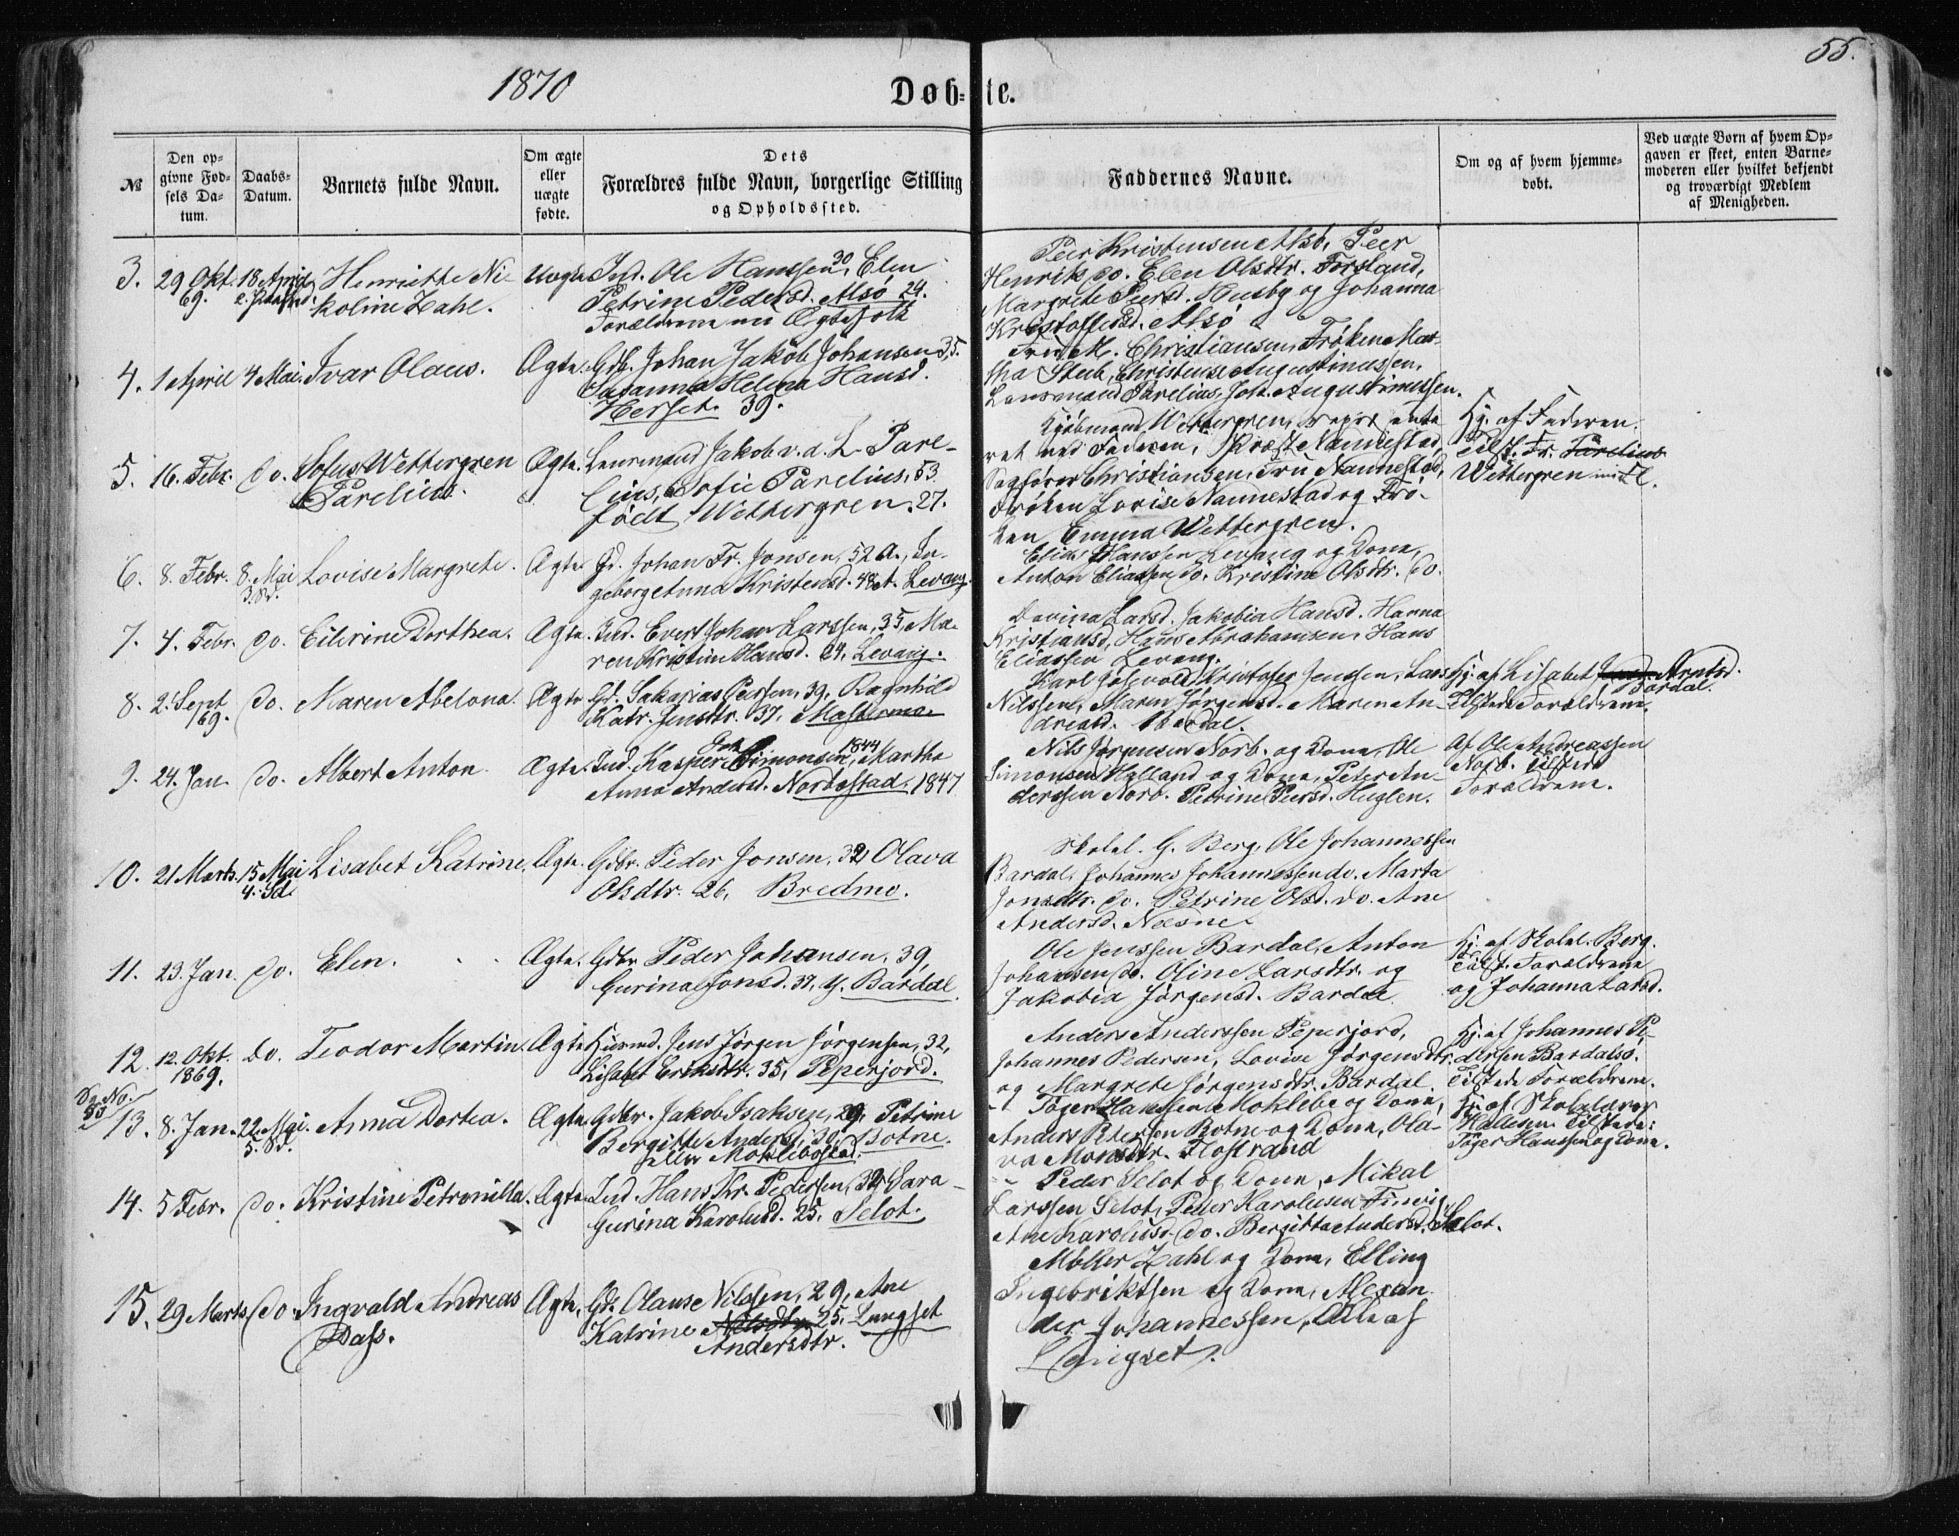 1870
Døb-te.
55.
№
Den opgivne Fødsels Datum.
Daabs-Datum.
Barnets fulde Navn.
Om ægte eller uægte fødte.
Dets Forældres fulde Navn, borgerlige Stilling og Opholdssted.
Faddernes Navne.
Om og af hvem hjemmedøbt.
Ved uægte Børn af hvem Opgaven er skeet, enten Barnemoderen eller hvilket bekjendt og troværdigt Medlem af Menigheden.
3. 29 Okt. 69. 18 April Henriette Nikoline Zahl. Uægte Ind. Ole Hanssen 30, Elen
Petrine Pedersd. Alsø 24.
Forældrene nu Ægtefolk
Peer Kristensen Alsø, Peer
Henrik do. Elen Olsdtr. Forsland,
Margrete Peersd. Husby og Johanna
Kristoffersd. Alsø
4. 1 April 4 Mai Ivar Olaus. Ægte. Gdb. Johan Jakob Johansen 35.
Susanna Helena Hansd.
Herset. 39.
Fru M. Christiansen, Frøken Mar-
tha Steen, Christense Augustinussen,
Lensmand Parelius, Joh. Augustinussen.
5. 16. Febr. do. Sofus Wettergren Parelius. Ægte. Lensmand Jakob v. d. L. Pare-
lius, Sofie Parelius, 53.
født Wettergren. 27.
Kjøbmand Wettergren, repræsente-
ret ved Faderen, Præst Nannestad,
Sagfører Christiansen, Fru Nannestad,
Frøken Lovise Nannestad og Frø-
ken Emma Wettergren.
Hj. af Faderen.
Tilst. Fr. Parelius
Wettergren
6. 8. Febr. 8. Mai 3. Sd. Lovise Margrete. Ægte. Gd. Johan Fr. Jonsen, 52 A., In-
geborg Anna Kristensd. 48 A. Levang.
Elias Hanssen Levang og Kone,
Anton Eliassen do. Kristine Olsdtr. do.
7. 4. Febr. do. Eilerine Dorthea. Ægte. Ind. Evert Johan Larssen, 35, Ma-
ren Kristine Hansd. 24, Levang.
Davina Larsd. Jakobia Hansd. Hanna
Kristiansd, Hans Abrahamsen, Hans
Eliassen Levang.
8. 2. Sept 69. do. Maren Abelona. Ægte Gd. Sakarias Persen, 39, Ragnhild
Katr. Jensdtr. 37.
Nilssen, Maren Jørgensd. Maren An-
dreasd. Bardal.
Hj. af Lisabet Arntsd.
Bardal.
Tilstede Forældrene.
9. 24. Jan. do. Albert Anton. Ægte. Ind. Kasper Joh. Simonsen 1844, Martha
Anna Andersd. Nordostad. 1847
Nils Jørgensen Norb. og Kone, Ole
Simonsen Hylland og Kone, Peter An-
derssen Norb. Petrine Peersd. Huglen.
Af Ole Andreassen
Norb. Tilstede
Forældrene.
10. 21 Marts. 15 Mai 4. Sd. Lisabet Katrine. Ægte. Gdbr. Peder Jonsen, 32, Olava
Olsdtr. 26, Bredmo.
Skolel. G. Berg, Ole Johannessen
Bardal, Johannes Johannessen do. Marta
Jonsdtr. do. Petrine Olsd. do. Ane
Andersd. Næsne
11. 23. Jan. do. Elen. Ægte. Gdbr Peder Johansen, 39,
Gurina Jonsd. 37, Y. Bardal.
Ole Jenssen Bardal, Anton
Johansen do. Oline Larsdtr. og
Jakobia Jørgensd. Bardal
Hj. af Skolel. Berg.
Tilst. Forældrene
og Johanna Larsd.
12. 12. Okt. 1869. do. Teodor Martin. Ægte Huusmd. Jens Jørgen Jørgensen, 32,
Lisabet Eriksdtr. 35, Peperjord.
Anders Anderssen Peperjord,
Johannes Pedersen, Lovise Jørgensdtr.
og Margrete Jørgensdtr. Bardal.
Hj. af Johannes Pe-
dersen Bardalsø.
Tilstede Forældrene.
13. 8. Jan. 22. Mai. 5. Sd. Anna Dortea. Ægte Gdbr. Jakob Isaksen, 29, Petrine
Bergitte Andersd. 30. Botne.
eller Moklebostad.
Tøger Hanssen Mokleb. og Kone,
Anders Petersen Botne og Kone, Ola-
va Monsdtr. Flostrand
Hj. af Skolelærer
Hallesen. Tilstede:
Tøger Hanssen og Kone.
14. 5 Febr. do. Kristine Petronilla. Ægte Ind. Hans Kr. Pedersen, 32, Sara
Gurina Karolusd. 25, Selot.
Peder Selot og Kone, Mikal
Larssen Selot, Peder Karolusen Finvig,
Ane Karolusd. do. Bergitta Andersd. Selot.
15. 29 Marts do. Ingvald Andreas Dass. Ægte. Gdb. Olaus Nilssen, 29, Ane
Katrine Nilsdtr. 25, Langset
Andersdtr.
Møller Zahl og Kone, Elling
Ingebriktsen og Kone, Alexan-
der Johannessen, Alle af
Langset.